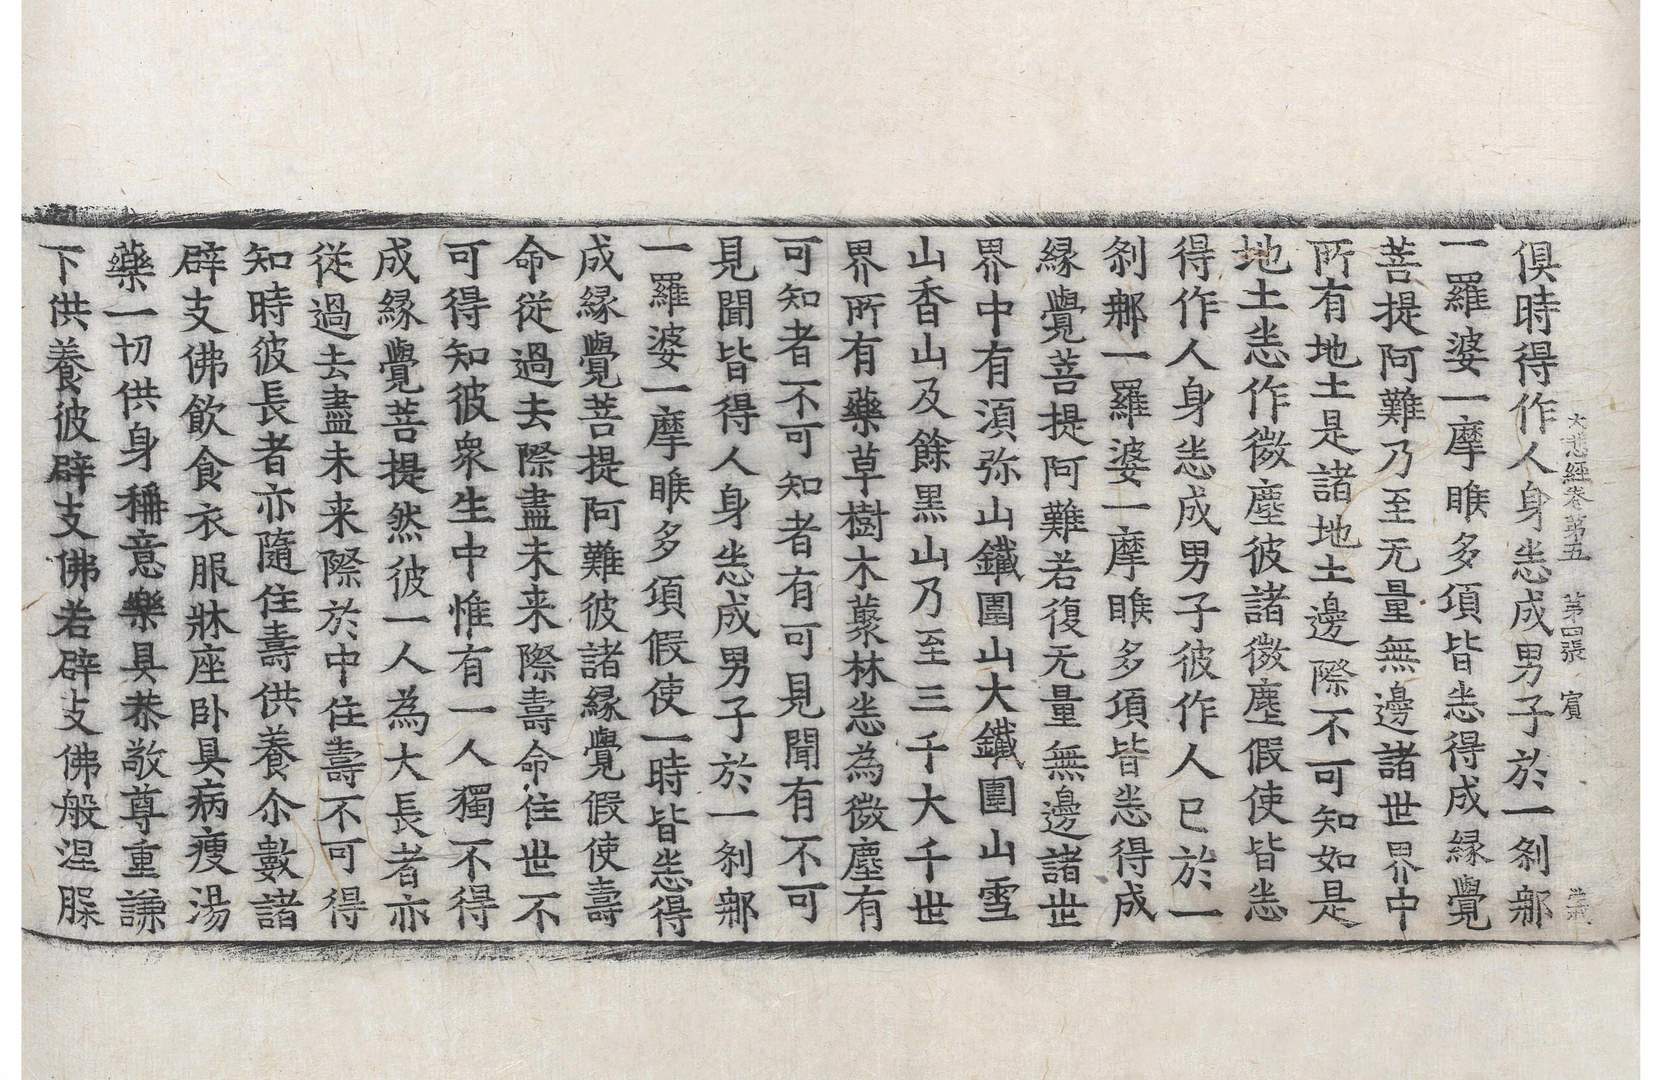 大悲經卷第五　第四張　賓
俱時得作人身悉成男子於一刹那
一羅婆一摩睺多項皆悉得成縁覺
菩提阿難乃至无量無邊諸世界中
所有地土是諸地土邊際不可知如是
地土悉作微塵彼諸微塵假使皆悉
得作人身悉成男子彼作人已於一
刹那一羅婆一摩睺多項皆悉得成
縁覺菩提阿難若復无量無邊諸世
界中有須弥山鐵圍山大鐵圍山雪
山香山及餘黒山乃至三千大千世
界所有藥草樹木藂林悉為微塵有
可知者不可知者有可見聞有不可
見聞皆得人身悉成男子於一刹那
一羅婆一摩睺多項假使一時皆悉得
成縁覺菩提阿難彼諸縁覺假使壽
命從過去際盡未来際壽命住世不
可得知彼衆生中惟有一人獨不得
成縁覺菩提然彼一人為大長者亦
從過去盡未来際於中住壽不可得
知時彼長者亦隨住壽供養尒數諸
辟支佛飲食衣服牀座卧具病瘦湯
藥一切供身稱意樂具恭敬尊重謙
下供養彼辟支佛若辟支佛般涅槃